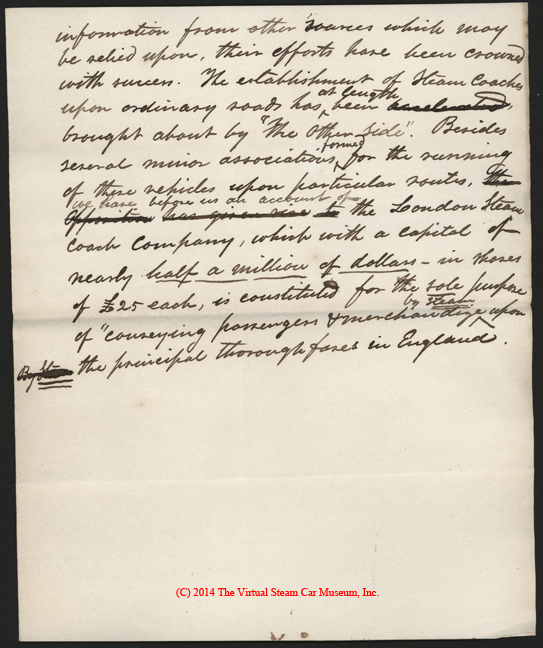 information from other sources which may
be relied upon, their efforts have been crowned
with success. The establishment of Steam Coaches
at length
upon ordinary roads has, been accelerated,
brought about by "The Other Side". Besides
formed
several minor associations, for the running
of these vehicles upon particular routes, the
we have before us an account of
Opposition has given rise to the London Steam
Coach Company, which with a capital of
nearly half a million of dollars - in shares
of £25 each, is constituted for the sole purpose
by steam
of "conveying passengers & merchandize upon
By Steam the principal thoroughfares in England.
(C) 2014 The Virtual Steam Car Museum, Inc.